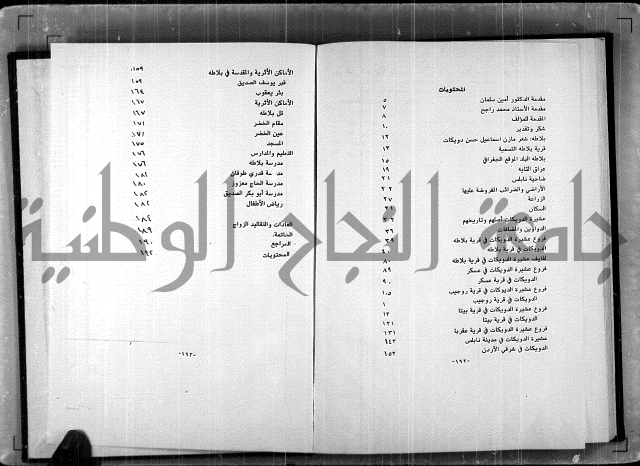 المحتويات
مقدمة الدكتور أمين سلمان ٥
مقدمة الأستاذ محمد راجح ٧
المقدمة للمؤلف ٨
شكر وتقدير ١٠
بلاطه: شعر مازن اسماعيل حسن دويكات ١٢
قرية بلاطه التسمية ١٣
بلاطه البلد الموقع الجغرافي ١٥
عراق التايه ١٩
ضاحية نابلس ٢١
الأراضي والضرائب المفروضة عليها
الزراعة ٢٧
السكان
عشيرة الدويكات أصلهم وتاريخهم
الدواوين والمضافات
فروع عشيرة الدويكات في قرية بلاطه
الدويكات في قرية بلاطه
لفايف عشيرة الدويكات في قرية بلاطه
فروع عشيرة الدويكات في عسكر ٨٠
الدويكات في قرية عسكر
فروع عشيرة الدويكات في قرية روجيب ١٠٥
الدويكات في قرية روجيب
فروع عشيرة الدويكات في قرية بيتا
الدويكات في قرية بيتا ١٢١
فروع عشيرة الدويكات في قرية عقربا ١٣١
عشيرة الدويكات في مدينة نابلس ١٤٢
الدويكات في شرقي الأردن ١٥٣
-١٩٢-
الأماكن الأثرية والمقدسة في بلاطه ١٥٩
قبر يوسف الصديق ١٥٩
بئر يعقوب ١٦٤
الأماكن الأثرية ١٦٧
تل بلاطه ١٦٧
مقام الخضر ١٧١
عين الخضر ١٧١
المسجد ١٧٥
التعليم والمدارس ١٧٦
مدرسة بلاطه ١٧٦
قدري طوقان ١٨٢
مدرسة الحاج معزوز ١٨٠
مدرسة أبو بكر الصديق ١٨٢
رياض الأطفال ١٨٢
العادات والتقاليد الزواج ١٨٤
الخاتمة ١٨٩
المراجع ١٩٠
المحتويات ١٩٢
-١٩٣-
جامعة النجاح الوطنية